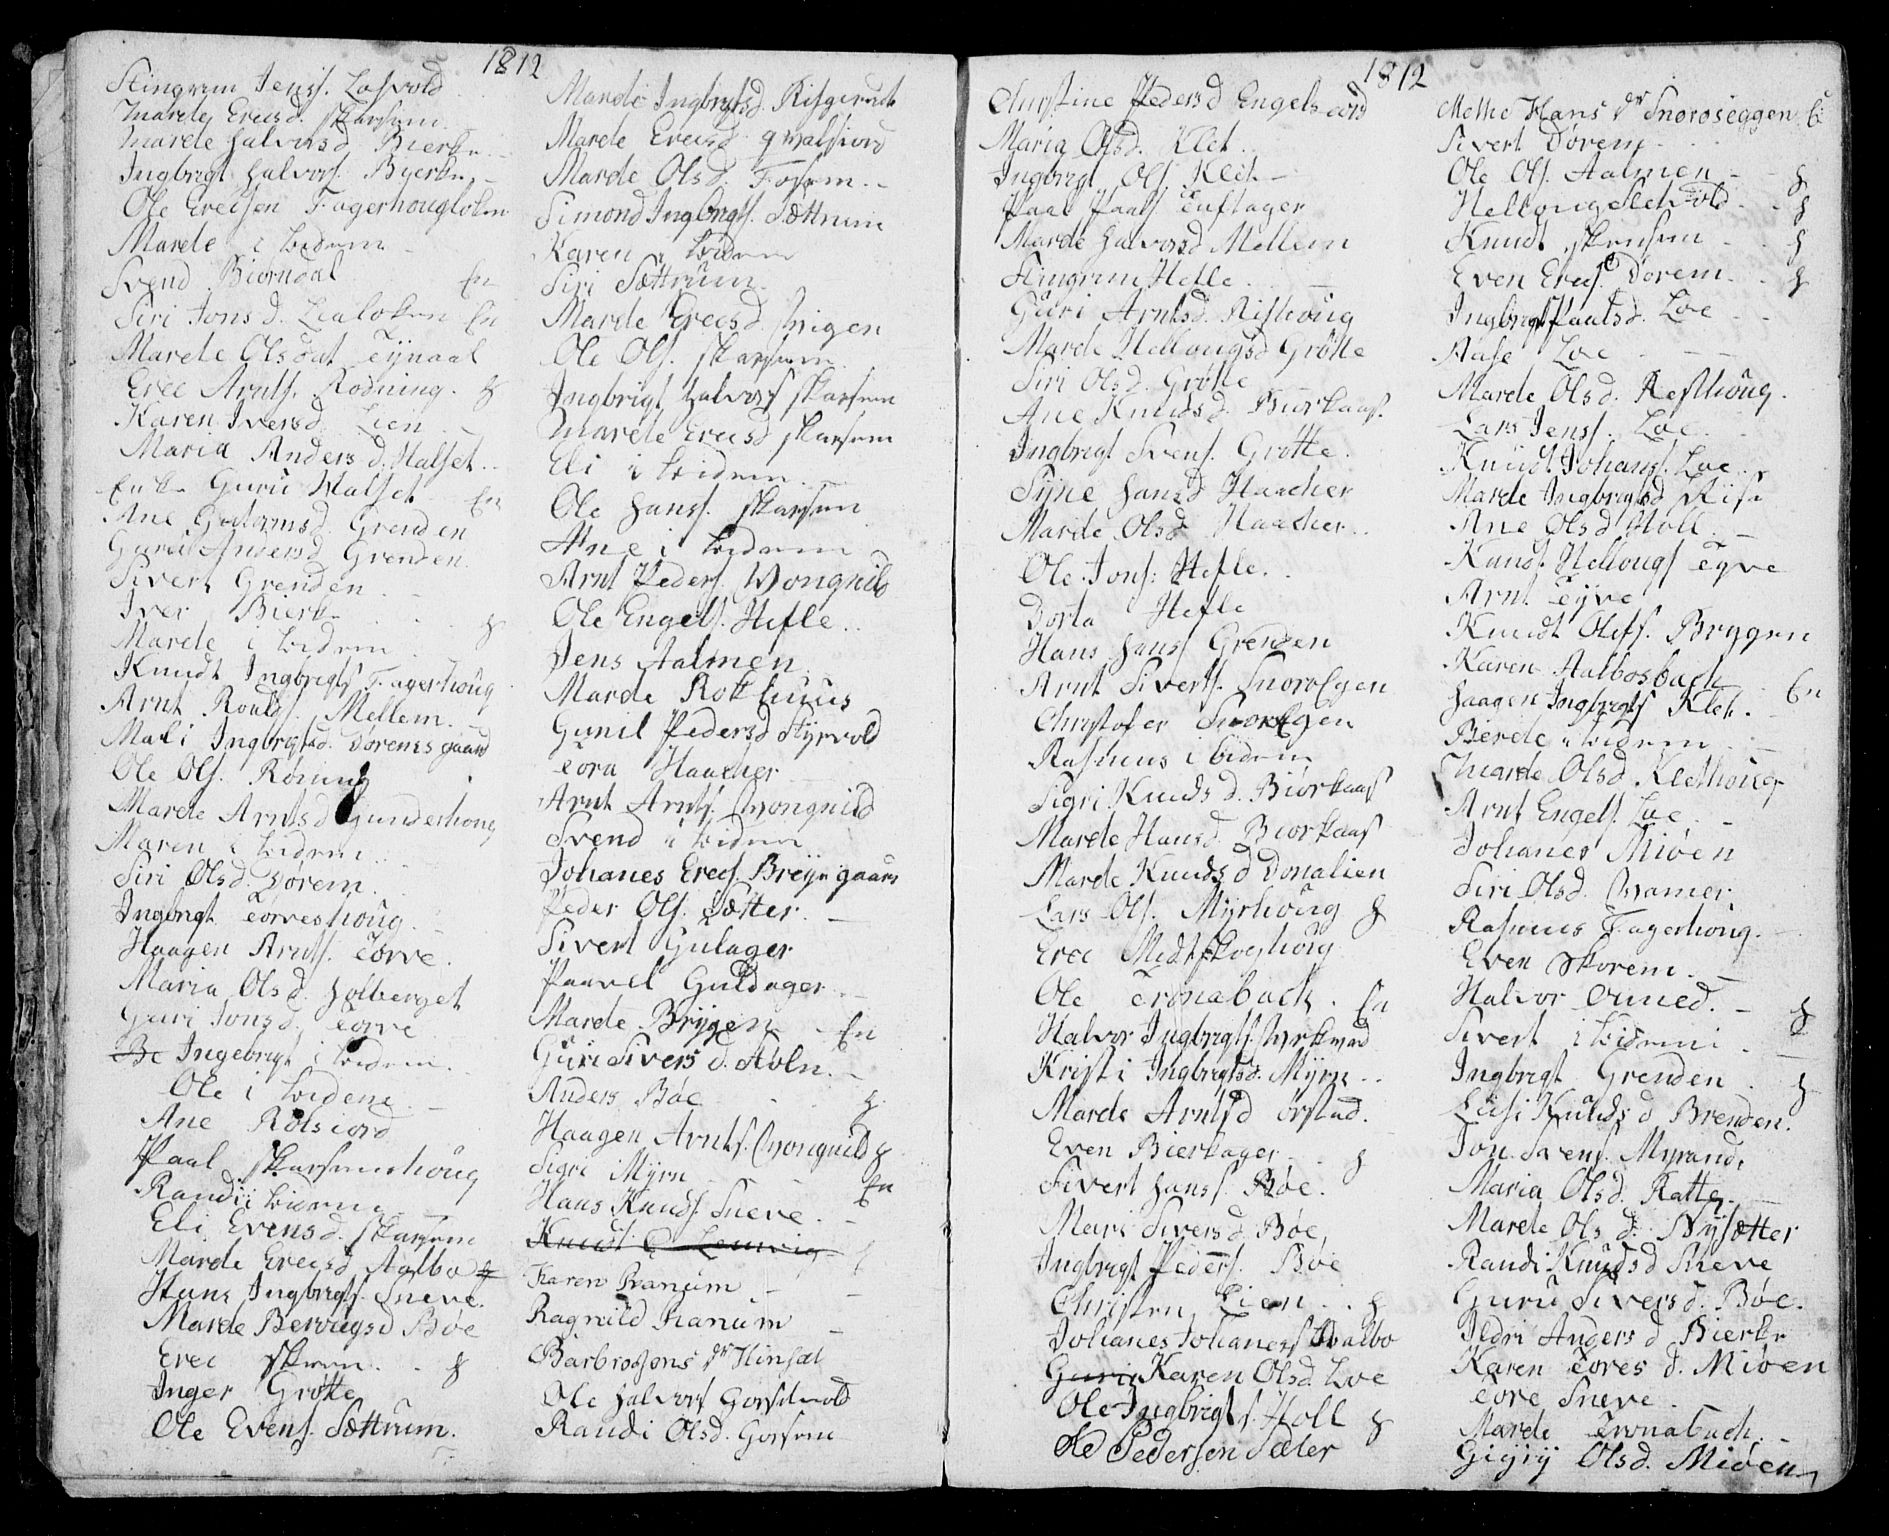 1812
Steingrim Jenss. Losvold
Marde Erecsd. Skarsem
Marde Halvorsd Bierke
Ingbrigt Halvors. Byerke
Ole Erecsen Fagerhougloken
Marde i bidem
Svend Biorndal En
Siri Jonsd. Lialoken En
Marde Olsdat Tynaal
Erec Arnts. Rodning. g
Karen Iversd. Lien
Maria Anders d. Halset
Enke Guru Halset En
Ane Guttormsd. Grenden
Guru Andersd Grenden
Sivert Grenden
Iver Bierke g
Marde i bidem
Knudt Ingbrigts. Fagerhoug
Arnt Roalds. Mellem
Mali Ingbrgtsd. Dorems gaard
Ole Ols. Roning
Marde Arntsd Gunderhoug
Maren i bidem
Siri Olsd. Dørem
Ingbrigt Torveshoug
Haagen Arnts. Torve
Maria Olsd. Holberget
Guri Jonsd. Torve
Be Ingebrigt i bidem
Ole i bidem
Ane Rolsiord
Paal Skarsemshoug
Randi i bidem
Eli Evensd. Skarsem
Marde Erecsd Aalbo
Hans Ingbrigts. Sneve
Marde Berdugsd Bøe
Erec Skorem g
Inger Grøtte
Ole Evens. Sættrum.
Marde Ingbrgtsd. Risgierde
Marde Erecsd qvalsiord
Marde Olsd. Fossem
Simond Ingbrgts. Sættrum
Karen i bidem
Siri Sættrum
Marde Erecsd. Wigen
Ole Ols. Skarsem
Ingbrigt Halvors Skarsem
Marde Erecsd Skarsem
Eli i bidem
Ole Hanss. Skarsem
Ane i bidem
Arnt Peders. Wongnild
Ole Engels. Hefle
Jens Aalmen
Marde Rothuus
Gunil Pedersd Styrvold
Tora Haacker
Arnt Arnts. Wongnild
Svend i bidem
Johanes Erecs. Bryngaars
Peder Ols. Sætter
Sivert Gulager
Paavel Guldager
Marde Brygen En
Guri Sivers d. Stoln
Anders Bøe g
Haagen Arnts. Wongnild g
Sigri Myrn
Hans Knuds. Sneve En
Knudt C Lenvig
Karen Kranum
Ragnild Kranum
Barbro Jons dr Hinsæt
Ole Halvors Gorsetvold
Randi Olsd. Gorsem
1812
Christine Peders d Engelsiord
Maria Olsd. Klet
Ingbrigt Ols Klet
Paal Paals Tuftager
Marde Halvorsd Mellem
Stingrim Hefle
Guri Arntsd. Risthoug
Marde Hellougsd Grøtte
Siri Olsd. Grøtte
Ane Knudsd. Biorkaas
Ingbrigt Svens. Grøtte
Syne Hansd Haacker
Marde Olsd Haacker
Ole Jons: Hefle
Dorta Hefle
Hans Hans Grenden
Arnt Siverts. Snoroegen
Christofer Snoroegen
Rasmus ibidem
Sigri Knuds d. Biorkaas
Marde Hansd. Biorkaas
Marde Knudsd Donalien
Lars Ols. Myrhoug g
Erec Medtskoghoug
Ole Tronaback. En
Halvor Ingbrigts. Myrkved
Kristi Ingbrigtsd. Myrn
Marde Arntsd Orstad
Even Bierkager g
Sivert Hans. Bøe
Mari Sivers d. Bøe
Ingbrigt Peders. Boe
Christen Lien g
Johanes Johaness Aalbo
Guri Karen Olsd. Loe
Ole Ingbrigts. Holl g
Ole Pedersen Sæter
Mette Hans dr Snoroseggen E
Sivert Dorem
Ole Ols. Aalmen g
Helloug Sletvold g
Knudt Skorsem g
Even Erecs. Dorem g
Ingbrigt Paalsd. Loe
Aase Loe
Marde Olsd. Resthoug
Lars Jens. Loe
Knudt Johans. Loe
Marde Ingbrigtsd Riise
Ane Olsd Holl
Knud. Hellougs Tyve
Arnt Tyve
Knudt Olefs. Brygen
Karen Aalbosbach En
Haagen Ingbrigts Klet
Berde i bidem
Marde Olsd. Klethoug
Arnt Engels. Loe
Johanes Mioen
Siri Olsd. Cramer
Rasmus Fagerhoug
Even Skorem
Halvor Aunet g
Sivert i bidem
Ingbrigt Grenden g
Luse Knuds d Brenden.
Jon Svens. Myrand
Maria Olsd. Ratte
Marde Ols d. Nysætter
Randi Knudsd Rieve
Guru Sivers d. Bøe
Ildri Anders d Bierke
Karen Tores d. Mioen
Tore Sneve
Marde Tronaback
Gigrij Olsd. Mioen